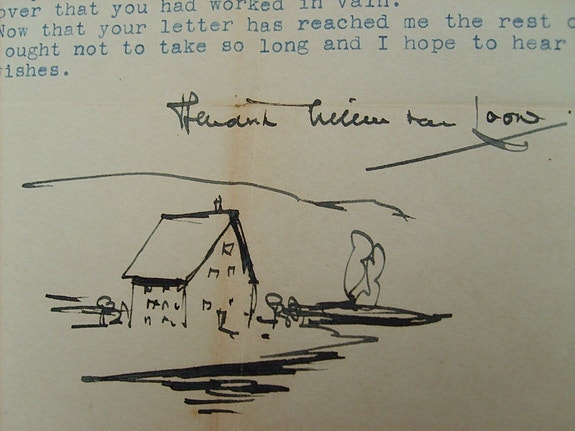 over that you had worked in vain.
Now that your letter has reached me the rest
ought not to take so long and I hope to hear
wishes.
Hendrik Willem van Loon